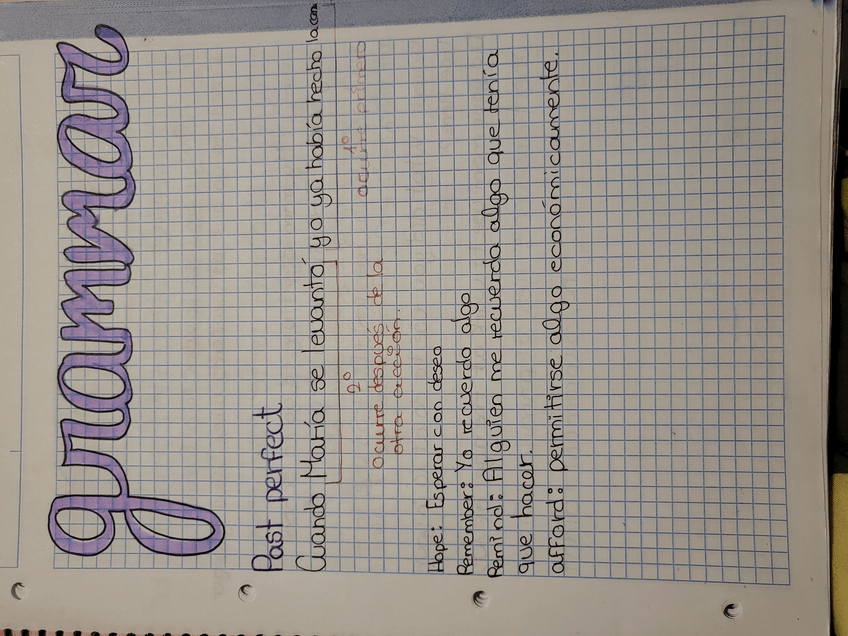 grammar
Past perfect
Cuando María se levantó, yo ya había hecho la cama
2º
1º
ocurre después de la
otra acción.
ocurre primero
Hope: Esperar con deseo
Remember: Yo recuerdo algo
Remind: Alguien me recuerda algo que tenía
que hacer.
afford: permitirse algo económicamente.